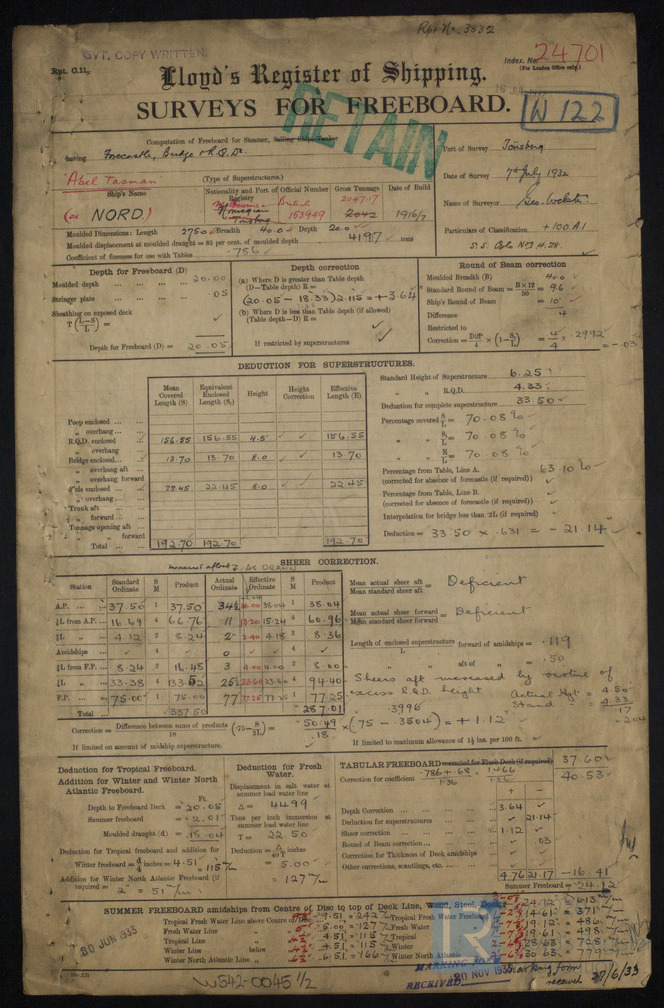 Rpt. No. 3832
GVT. COPY WRITTEN.
Rpt. C.11.
Index. No. 24701
(For London Office only.)
Lloyd's Register of Shipping.
SURVEYS FOR FREEBOARD.
W 122
RETAIN
Computation of Freeboard for Steamer, Sailing Ship, Tanker
having Forecastle, Bridge & R.Q.Dk.
(Type of Superstructures.)
Port of Survey Tönsberg
Date of Survey 7th July 1932
Name of Surveyor Geo. Webster
Particulars of Classification +100.A.1
"Abel Tasman"
Ship's Name
(ex NORD.)
Nationality and Port of Registry
British
Norwegian
Tonsberg
Official Number
153949
Gross Tonnage
2047.17
2042
Date of Build
1916/7
Moulded Dimensions: Length 275.0 Breadth 40.0 Depth 20.0
Moulded displacement at moulded draught = 85 per cent. of moulded depth 4197 tons
Coefficient of fineness for use with Tables .756
Depth for Freeboard (D)
Moulded depth 20.00
Stringer plate .05
Sheathing on exposed deck
T (L–S / L) =
Depth for Freeboard (D) = 20.05
Depth correction
(a) Where D is greater than Table depth
(D–Table depth) R =
(20.05 – 18.33) 2.115 = + 3.64
(b) Where D is less than Table depth (if allowed)
(Table depth–D) R =
If restricted by superstructures
Round of Beam correction
Moulded Breadth (B) 40.0
Standard Round of Beam = B × 12 / 50 = 9.6
Ship's Round of Beam = 10
Difference .4
Restricted to
Correction = Diff / 4 × (1 – S / L) = .4 / 4 × .2992 = –.03
DEDUCTION FOR SUPERSTRUCTURES.
Mean Covered Length (S)
Equivalent Enclosed Length (S₁)
Height
Height Correction
Effective Length (E)
Poop enclosed
„ overhang
R.Q.D. enclosed 156.55 156.55 4.5' 156.55
„ overhang
Bridge enclosed 13.70 13.70 8.0 13.70
„ overhang aft
„ overhang forward
F'cle enclosed 22.45 22.45 8.0 22.45
„ overhang
Trunk aft
„ forward
Tonnage opening aft
„ „ forward
Total 192.70 192.70 192.70
Standard Height of Superstructure 6.25
„ „ R.Q.D. 4.33
Deduction for complete superstructure 33.50
Percentage covered S / L = 70.08 %
„ „ S₁ / L = 70.08 %
„ „ E / L = 70.08 %
Percentage from Table, Line A.
(corrected for absence of forecastle (if required)) 63.10 %
Percentage from Table, Line B.
(corrected for absence of forecastle (if required))
Interpolation for bridge less than .2L (if required)
Deduction = 33.50 × .631 = – 21.14
SHEER CORRECTION.
Station
Standard Ordinate
S M
Product
Actual Ordinate
Effective Ordinate
S M
Product
A.P. 37.50 1 37.50 34½ 38.04 1 38.04
⅙L from A.P. 16.69 4 66.76 11 15.24 4 60.96
⅓L „ 4.12 2 8.24 2 4.18 2 8.36
Amidships 4 0 4
⅓L from F.P. 8.24 2 16.48 3 4.00 2 8.00
⅙L „ 33.38 4 133.52 25½ 23.60 4 94.40
F.P. 75.00 1 75.00 77 77.25 1 77.25
Total 337.50 287.01
Mean actual sheer aft / Mean standard sheer aft = Deficient
Mean actual sheer forward / Mean standard sheer forward = Deficient
Length of enclosed superstructure forward of amidships / L = .119
„ aft of „ = .50
Sheers aft increased by virtue of
excess R.Q.D. height
Actual Hgt = 4.50
Stand = 4.33
.17
= 2.04
Correction = Difference between sums of products / 18 (.75 – S / 2L) = 50.49 / 18 × (.75 – .3504) = + 1.12
.3996
If limited on account of midship superstructure.
If limited to maximum allowance of 1½ ins. per 100 ft.
Deduction for Tropical Freeboard.
Addition for Winter and Winter North Atlantic Freeboard.
Ft.
Depth to Freeboard Deck = 20.05
Summer freeboard = 2.01
Moulded draught (d) = 18.04
Deduction for Tropical freeboard and addition for
Winter freeboard = d / 4 inches = 4.51 = 115 m/m
Addition for Winter North Atlantic Freeboard (if required) = 2" = 51 m/m
Deduction for Fresh Water.
Displacement in salt water at summer load water line
Δ = 4499
Tons per inch immersion at summer load water line
T = 22.50
Deduction = Δ / 40T inches
= 5.00
= 127 m/m
TABULAR FREEBOARD corrected for Flush Deck (if required) 37.60
Correction for coefficient .786 + .68 / 1.36 1.466 / 1.36 40.53
+ –
Depth Correction 3.64
Deduction for superstructures 21.14
Sheer correction 1.12
Round of Beam correction .03
Correction for Thickness of Deck amidships
Other corrections, scantlings, etc.
4.76 21.17 –16.41
Summer Freeboard = 24.12
SUMMER FREEBOARD amidships from Centre of Disc to top of Deck Line, Wood, Steel, Deck
Tropical Fresh Water Line above Centre of Disc 9.51 = 242 m/m
Fresh Water Line „ 5.00 = 127
Tropical Line „ 4.51 = 115
Winter Line below „ 4.51 = 115
Winter North Atlantic Line „ „ 6.51 = 166
Tropical Fresh Water Freeboard 14.61 = 371
Fresh Water „ 19.12 = 486
Tropical „ 19.61 = 498
Winter „ 28.63 = 728
Winter North Atlantic „ 30.63 = 779
30 JUN 1933
MARKING FORM
RECEIVED
30 NOV 1933
Marking form
received 27/6/33
W542-0045 1/2